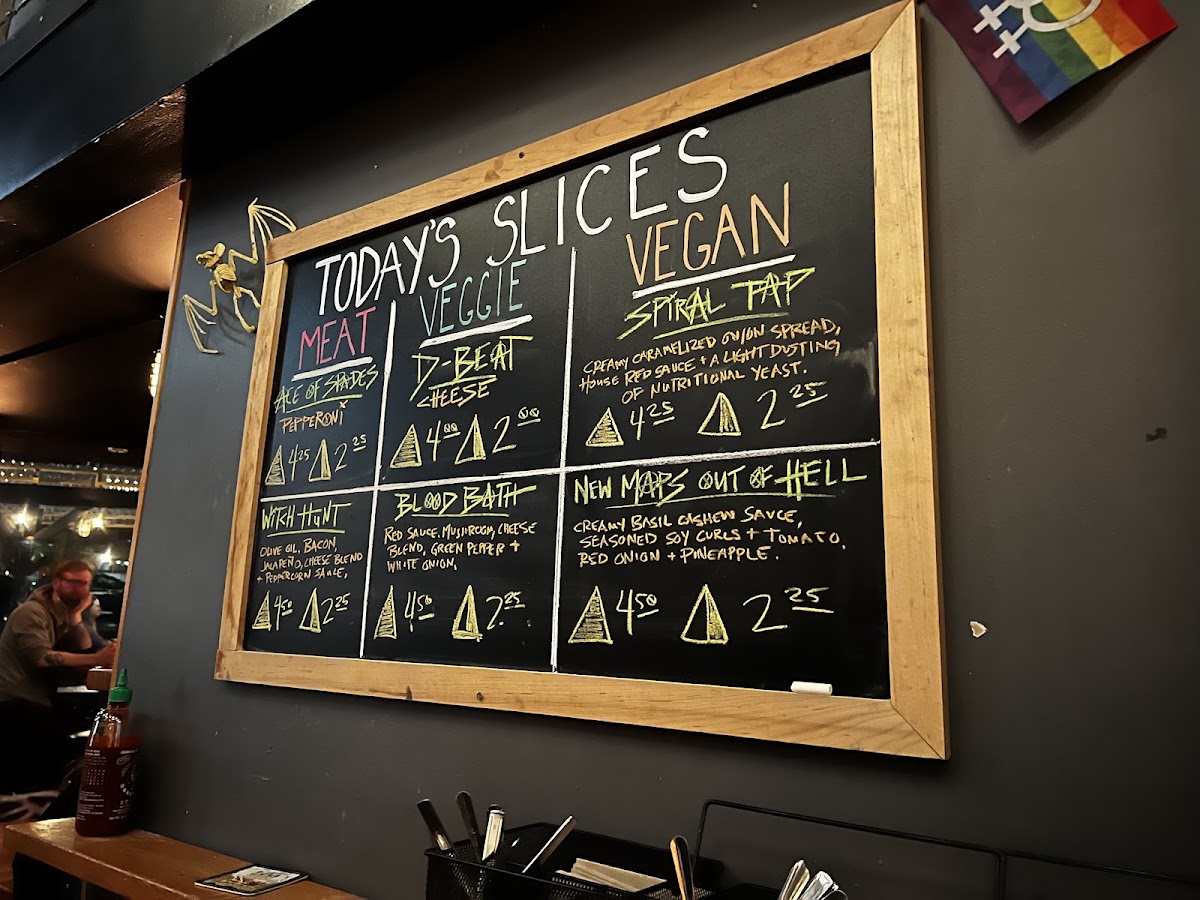 TODAY'S SLICES
MEAT
ACE OF SPADES
PEPPERONI
4 25 2 25
WITCH HUNT
OLIVE OIL, BACON,
JALAPEÑO, CHEESE BLEND
+ PEPPERCORN SAUCE,
4 50 2 25
VEGGIE
D-BEAT
CHEESE
4 00 2 00
BLOOD BATH
RED SAUCE, MUSHROOM, CHEESE
BLEND, GREEN PEPPER +
WHITE ONION,
4 50 2 25
VEGAN
SPIRAL TAP
CREAMY CARAMELIZED ONION SPREAD,
HOUSE RED SAUCE + A LIGHT DUSTING
OF NUTRITIONAL YEAST.
4 25 2 25
NEW MAPS OUT OF HELL
CREAMY BASIL CASHEW SAUCE,
SEASONED SOY CURLS + TOMATO,
RED ONION + PINEAPPLE.
4 50 2 25